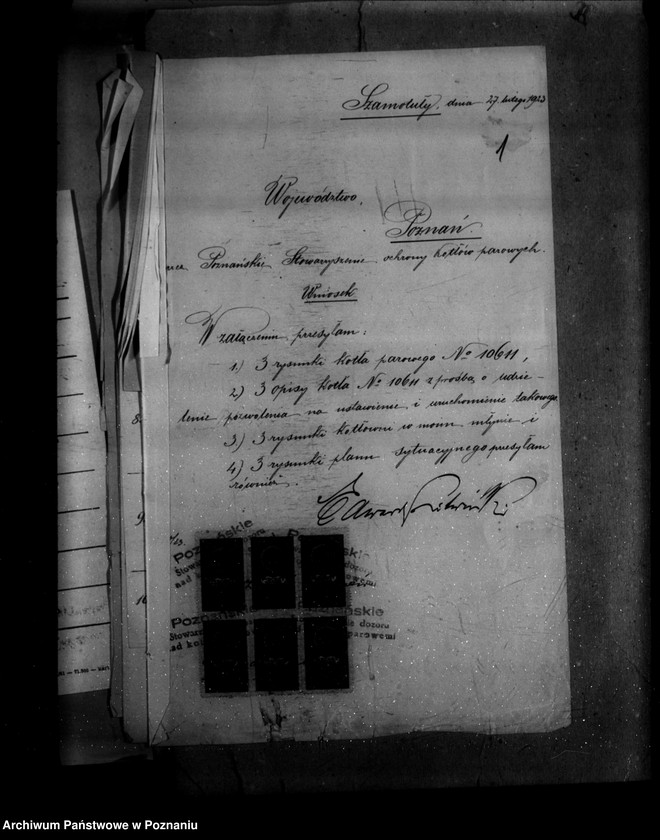 Szamotuły, dnia 27 lutego 1923
1
Województwo.
Poznań.
Poznańskie Stowarzyszenie ochrony kotłów parowych.
Wniosek
W załączeniu przesyłam:
1.) 3 rysunki kotła parowego No 10611,
2) 3 opisy kotła No 10611 z prośbą o udzie-
lenie pozwolenia na ustawienie i uruchomienie takowego
3) 3 rysunki kotłowni w moim młynie i
4) 3 rysunki planu sytuacyjnego przesyłam
również.
Edward
Poznańskie
Stowa
nad
parowemi
Poznańskie
Stowarz dozoru
nad kot parowemi
8.
9.
10
Archiwum Państwowe w Poznaniu